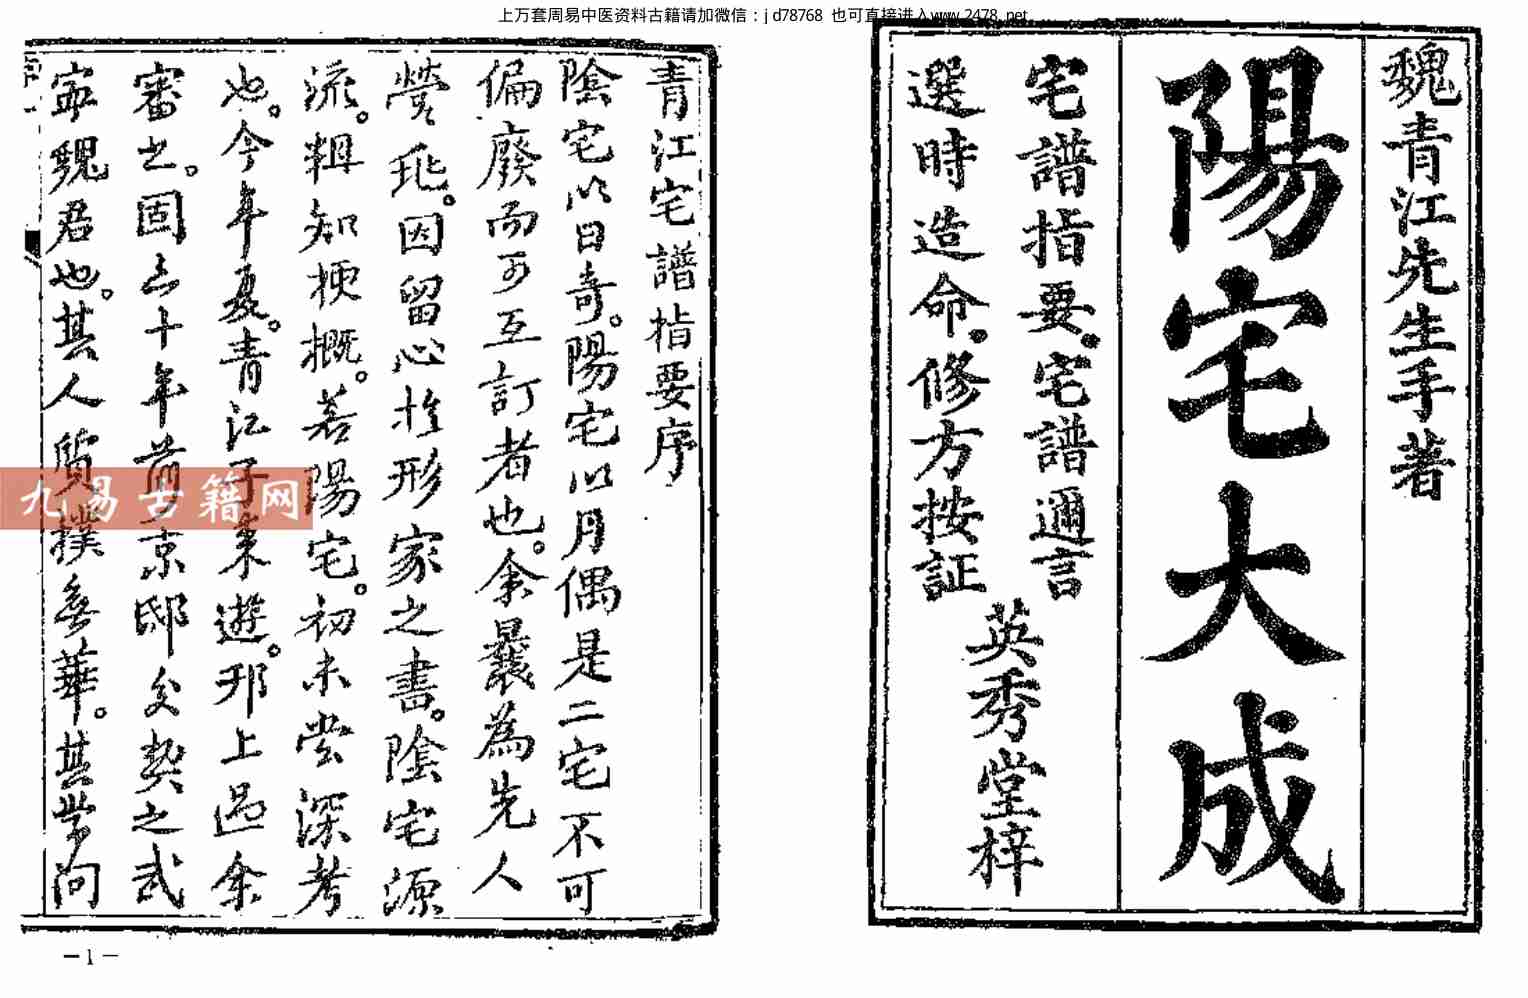 上万套周易中医资料古籍请加微信：jd78768 也可直接进入www.2478.net
魏青江先生手著
陽宅大成
宅譜指要。宅譜邇言
選時造命。修方按証
英秀堂梓
青江宅譜指要序
陰宅以日奇。陽宅以月偶是二宅不可
偏廢而可互訂者也。余曩為先人
塋兆。因留心於形家之書。陰宅源
流。輯知梗概。若陽宅。初未嘗深考
也。今年夏。青江子來遊。邗上過余
審之。固三十年前京邸文契之武
寧魏君也。其人質樸無華。其學问
九易古籍网
－1－